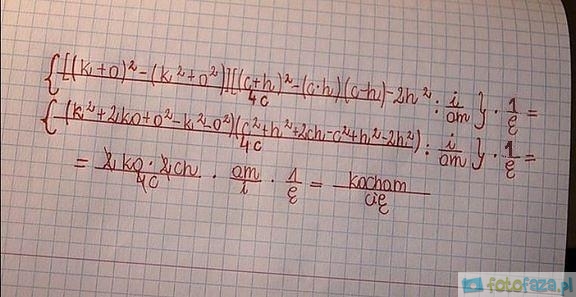 { [(k+o)² - (k²+o²)][(c+h)² - (c·h)(c-h) - 2h² / 4c : i/am } · 1/ę =
{ (k²+2ko+o²-k²-o²)(c²+h²+2ch-c²+h²-2h²) / 4c : i/am } · 1/ę =
= 2ko · 2ch / 4c · am/i · 1/ę = kocham / cię
fotofaza.pl